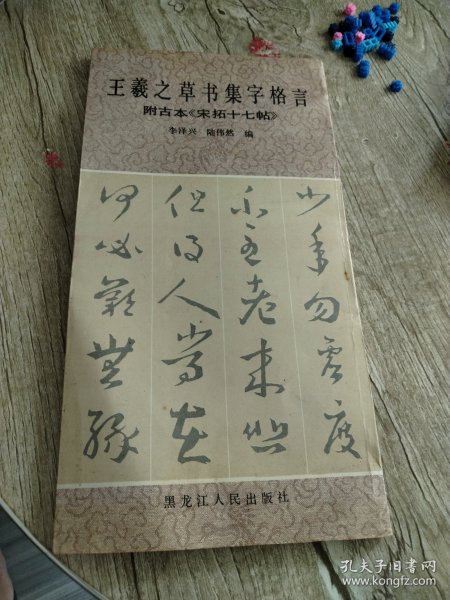 王羲之草书集字格言
附古本《宋拓十七帖》
李泽兴 陆伟然 编
少年勿虚度
老来悲
但得人常在
何必 無缘
黑龙江人民出版社
孔夫子旧书网
www.kongfz.com